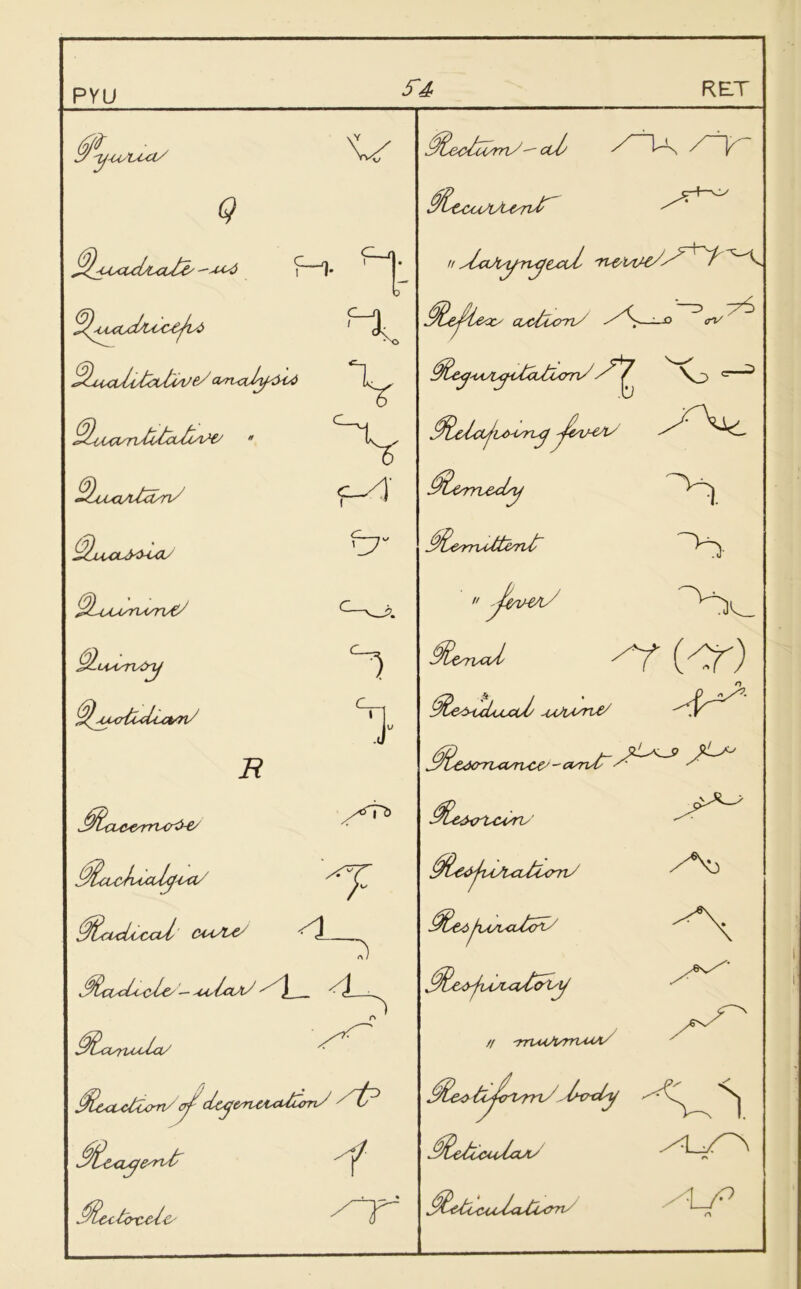 PYU
54
RET
Pyuria
Q
Quadrate -us
Quadriceps
Qualitative analysis
Quantitative "
Quartan
Quassia
Quinine
Quinsy
Quotidian
R
Racemose
Rachialgia
Radical cure
Radicle - ular
Ranula
Reaction of degeneration
Reagent
Rectocele
Rectum - al
Recurrent
" laryngeal nerve
Reflex action or
Regurgitation
Relapsing fever
Remedy
Remittent
" fever
Renal
Residual urine
Resonance - ant
Resorcin
Respiration
Respirator
Respiratory
" murmur
Restiform body
Reticular
Reticulation